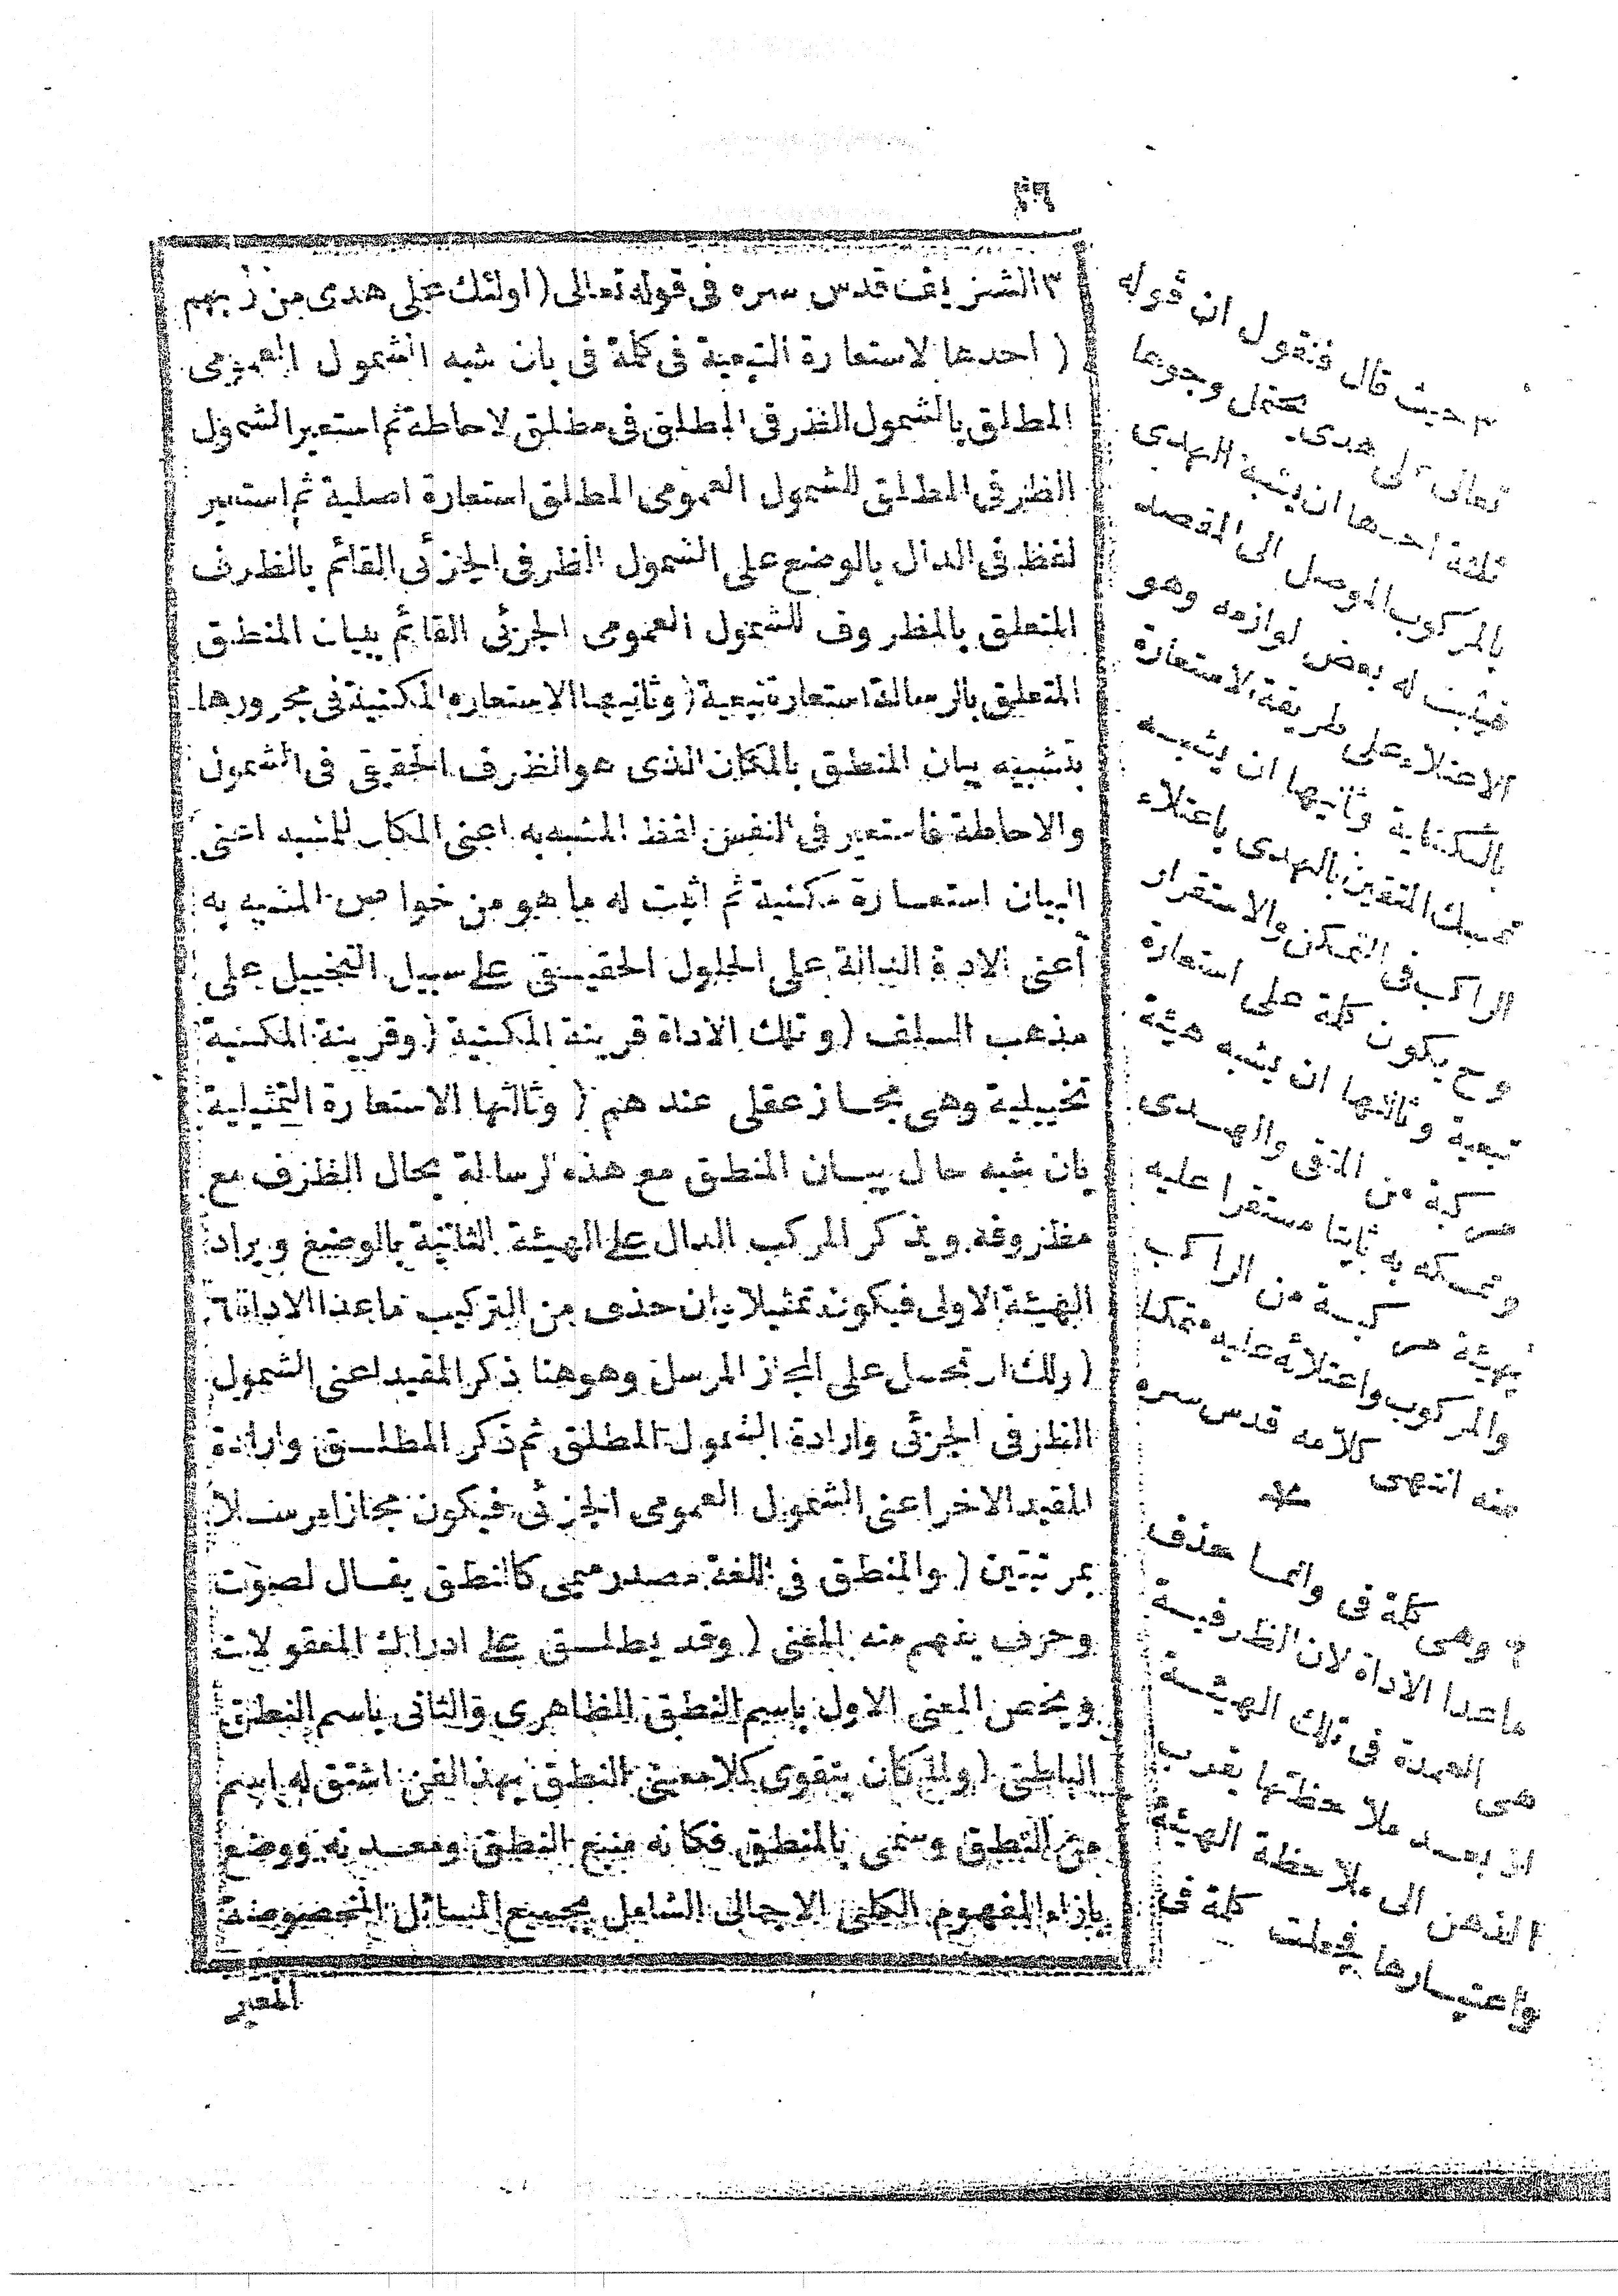 ٣ الشريف قدس سره فى قوله تعالى ( اولئك على هدى من ربهم
( احدها لاستعارة التبعية فى كلمة فى بان شبه الشمول العمومى
المطلق بالشمول الظرفى المطلق فى مطلق لاحاطة ثم استعير الشمول
الظرفى المطلق للشمول العمومى المطلق استعارة اصلية ثم استعير
لفظ فى الدال بالوضع على الشمول الظرفى الجزئى القائم بالظرف
المتعلق بالمظروف للشمول العمومى الجزئى القائم ببيان المنطق
المتعلق بالرسالة استعارة تبعية ( وثانيها الاستعاره المكنية فى مجرورها
بتشبيه بيان المنطق بالمكان الذى هو الظرف الحقيقى فى الشمول
والاحاطة فاستعير فى النفس لفظ المشبه به اعنى المكان للمشبه اعنى
البيان استعارة مكنية ثم اثبت له ما هو من خواص المشبه به
أعنى الاداة الدالة على الحلول الحقيقى على سبيل التخييل على
مذهب السلف ( وتلك الاداة قرينة المكنية ( وقرينة المكنية
تخييلية وهى مجاز عقلى عندهم ( وثالثها الاستعارة التمثيلية
بان شبه حال بيان المنطق مع هذه الرسالة بحال الظرف مع
مظروفه ويذكر المركب الدال على الهيئة الثانية بالوضع ويراد
الهيئة الاولى فيكون تمثيلا بان حذف من التركيب ماعدا الاداة ٦
( ولك ان تحمل على المجاز المرسل وهو هنا ذكر المقيد اعنى الشمول
الظرفى الجزئى وارادة الشمول المطلق ثم ذكر المطلق وارادة
المقيد الاخر اعنى الشمول العمومى الجزئى فيكون مجازا مرسلا
بمرتبتين ( والمنطق فى اللغة مصدر ميمى كالنطق يقال لصوت
وحرف يفهم منه المعنى ( وقد يطلق على ادراك المعقولات
ويخص المعنى الاول باسم النطق الظاهرى والثانى باسم النطق
الباطنى ( ولما كان يتقوى كلا معنى النطق بهذا الفن اشتق له اسم
من النطق وسمى بالمنطق فكانه منبع النطق ومعدنه ووضع
بازاء المفهوم الكلى الاجمالى الشامل بجميع المسائل المخصوصة
المعبر
٣ حيث قال فنقول ان قوله
تعالى على هدى يحتمل وجوها
ثلثة احدها ان يشبه الهدى
بالمركوب الموصل الى المقصد
فيثبت له بعض لوازمه وهو
الاعتلاء على طريقة الاستعارة
بالكناية وثانيها ان يشبه
تمسك المتقين بالهدى باعتلاء
الراكب فى التمكن والاستقرار
وح يكون كلمة على استعارة
تبعية وثالثها ان يشبه هيئة
مركبة من المتقى والهدى
وتمسكه به ثابتا مستقرا عليه
بهيئة مركبة من الراكب
والمركوب واعتلائه عليه متمكنا
منه انتهى كلامه قدس سره
٦ وهى كلمة فى وانما حذف
ماعدا الاداة لان الظرفية
هى العمدة فى تلك الهيئة
اذ بعد ملاحظتها يقرب
الذهن الى ملاحظة الهيئة
واعتبارها فجعلت كلمة فى